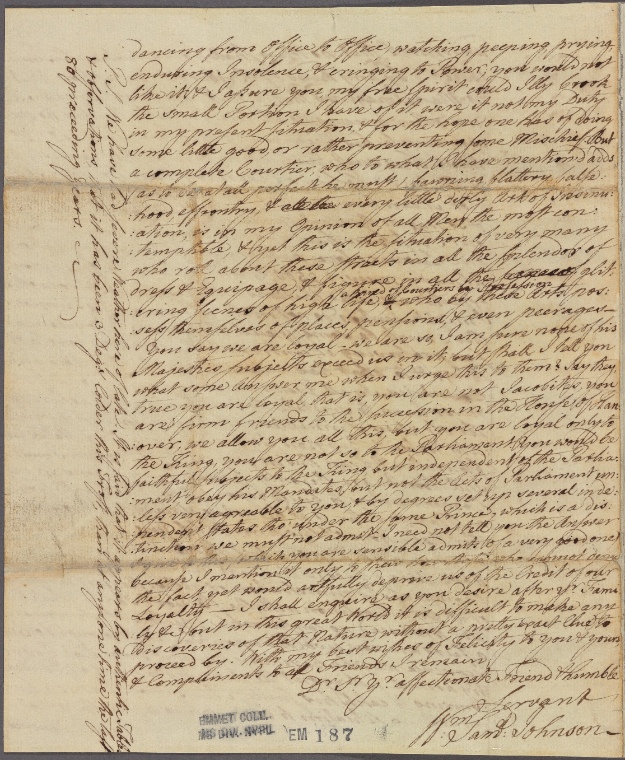 dancing from Office to Office, watching peeping prying
enduring Insolence, & cringing to Power, you would not
like it, & I assure you my free Spirit could Illy brook
the small Portion I have of it were it not my Duty
in my present situation, & for the hope one has of doing
some little good or rather preventing some Mischief. But
a complete Courtier, who to what I have mentioned adds
as to excel all perfect he must, fawning flattery, false-
:hood effrontry, & every little dirty Art of Insinu:
:ation, is in my Opinion of all Men the most con:
:temptible & yet this is the situation of very many
who roll about these streets in all the splendor of
dress & Equipage & figure in all the glit:
:tering scenes of high life & who by these Arts pos:
a breed of Courtiers by Profession
:sess themselves of places, pensions, & even peerages—
You say we are loyal – we are so, I am sure none of his
Majesties subjects exceed us in it, but shall I tell you
what some answer me when I urge this to them? Say they
true you are loyal, that is, you are not Jacobites, you
are firm friends to the succession in the House of Han:
:over, we allow you all this, but you are loyal only to
the King, you are not so to the Parliament, you would be
faithful subjects to the King but independent of the Parlia:
:ment obey his Mandates, but not the Acts of Parliament un:
:less very agreable to you, & by degrees set up several inde:
:pendent states tho' under the same Prince, which is a dis:
:tinction we must not admit. I need not tell you the Answer
you are sensible admits of a very good one)
because I mention it only to shew how who cannot deny
the fact, yet would artfully deprive us of the Credit of our
Loyalty — I shall enquire as you desire after yr. Fami
:ly &c, but in this great World it is difficult to make any
discoveries of that Nature without a pretty exact Clue to
proceed by. With my best wishes of Felicity to you & yours
& Compliments to all Friends I remain,
Dr. Sr. Yr. affectionate Friend & humble
Servant
Wm. Saml. Johnson
P.S. We have had severe Weather here of late. You
& observations, that it has been 3 Degs. Colder this
80 preceeding years
EMMET COLL.
MS DIV. NYPL
EM 187